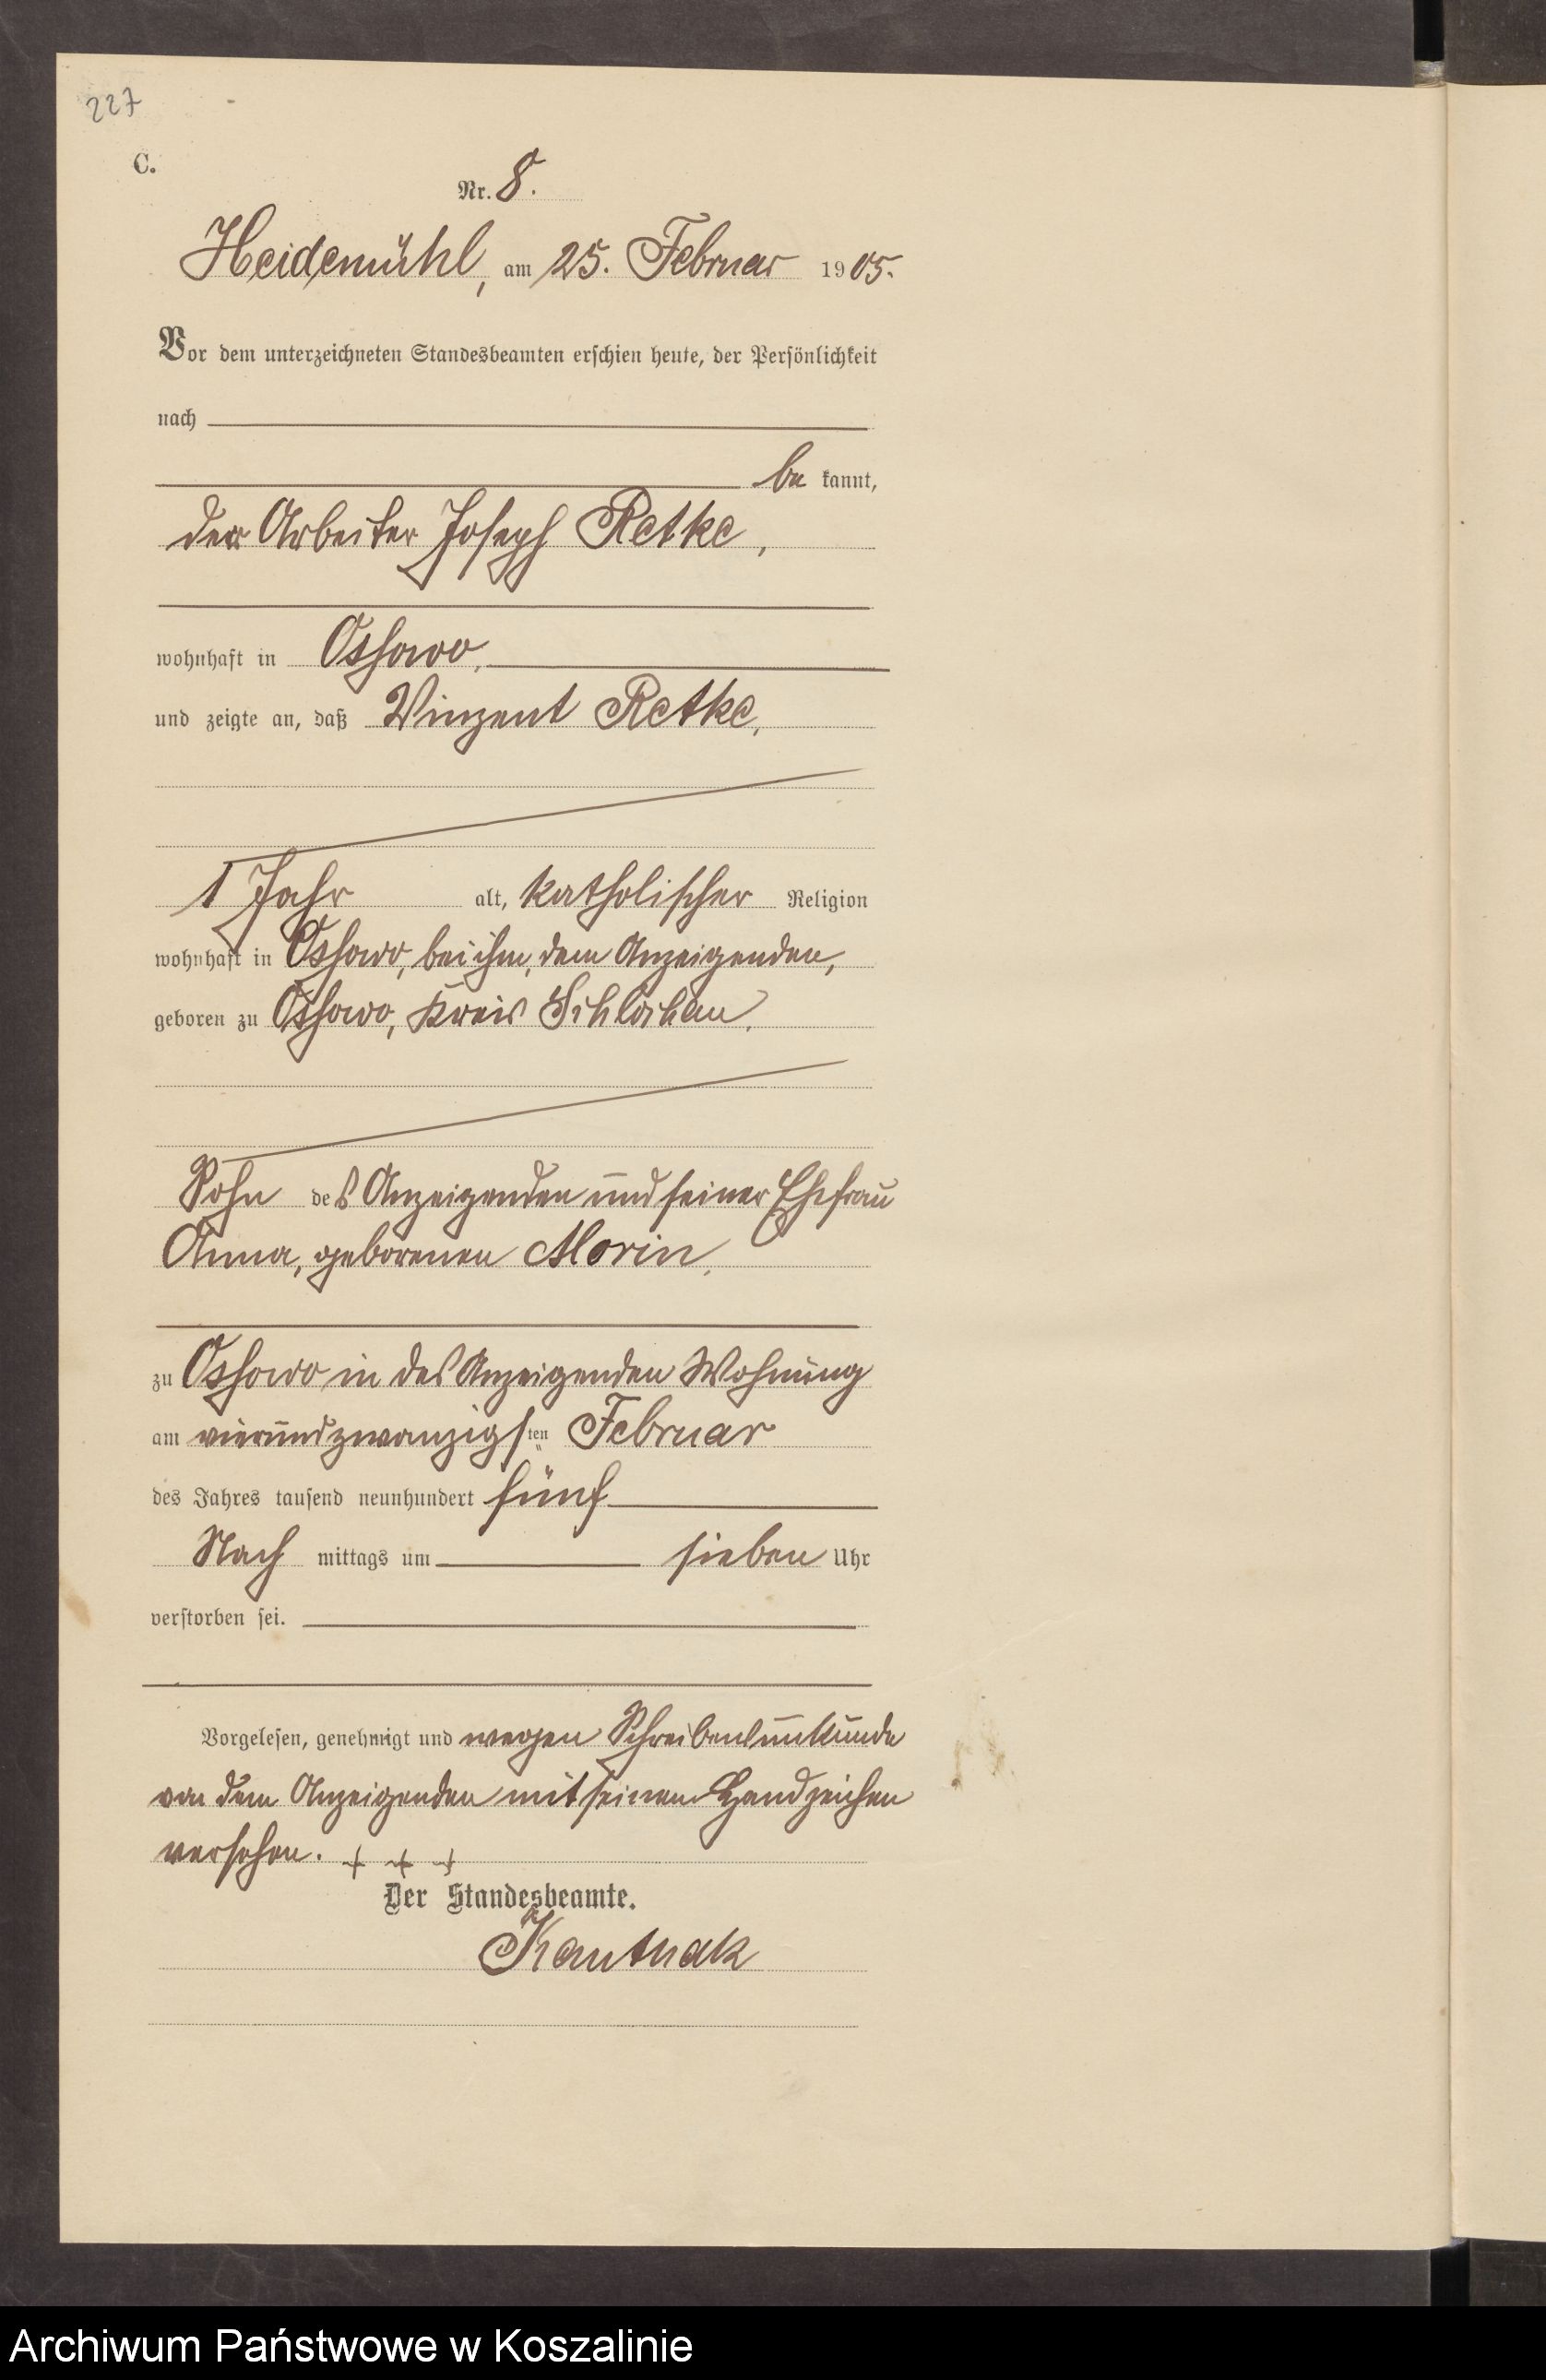 227
C.
Nr. 8.
Heidemühl, am 25. Februar 1905.
Vor dem unterzeichneten Standesbeamten erschien heute, der Persönlichkeit
nach
be kannt,
der Arbeiter Joseph Retke,
wohnhaft in Ossowo,
und zeigte an, daß Vinzent Retke,
1 Jahr alt, katholischer Religion
wohnhaft in Ossowo, bei ihm, dem Anzeigenden,
geboren zu Ossowo, Kreis Schlochau.
Sohn des Anzeigenden und seiner Ehefrau
Anna, geborenen Morin.
zu Ossowo in des Anzeigenden Wohnung
am vierundzwanzigsten Februar
des Jahres tausend neunhundert fünf
Nach mittags um sieben Uhr
verstorben sei.
Vorgelesen, genehmigt und wegen Schreibensunkunde
von dem Anzeigenden mit seinem Handzeichen
versehen. + + +
Der Standesbeamte.
Kantnak
Archiwum Państwowe w Koszalinie